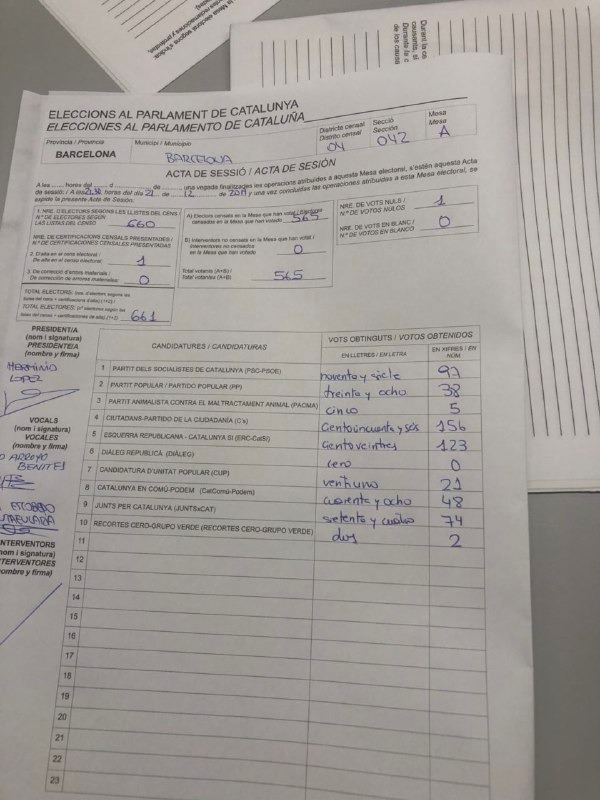 Durant la ce
causants, si
Durante la c
de los causa
ELECCIONS AL PARLAMENT DE CATALUNYA
ELECCIONES AL PARLAMENTO DE CATALUÑA
Província / Provincia
BARCELONA
Municipi / Municipio
BARCELONA
Districte censal
Distrito censal
04
Secció
Sección
042
Mesa
Mesa
A
ACTA DE SESSIÓ / ACTA DE SESIÓN
A les ...... hores del ...... d ...... de ...... una vegada finalitzades les operacions atribuïdes a aquesta Mesa electoral, s'estén aquesta Acta
de sessió: / A las 21:30 horas del día 21 de 12 de 2017 y una vez concluidas las operaciones atribuidas a esta Mesa electoral, se
expide la presente Acta de Sesión:
1. NRE. D'ELECTORS SEGONS LES LLISTES DEL CENS /
N.º DE ELECTORES SEGÚN
LAS LISTAS DEL CENSO
660
NRE. DE CERTIFICACIONS CENSALS PRESENTADES /
N.º DE CERTIFICACIONES CENSALES PRESENTADAS
2. D'alta en el cens electoral /
De alta en el censo electoral
1
3. De correcció d'errors materials /
De corrección de errores materiales:
0
TOTAL ELECTORS: (nre. d'electors segons les
llistes del cens + certificacions d'alta) (1+2) /
TOTAL ELECTORES: (nº electores según las
listas del censo + certificaciones de alta) (1+2)
661
A) Electors censats en la Mesa que han votat / Electores
censados en la Mesa que han votado
565
B) Interventors no censats en la Mesa que han votat /
Interventores no censados
en la Mesa que han votado
0
Total votants (A+B) /
Total votantes (A+B)
565
NRE. DE VOTS NULS /
N.º DE VOTOS NULOS
1
NRE. DE VOTS EN BLANC /
N.º DE VOTOS EN BLANCO
0
PRESIDENT/A
(nom i signatura)
PRESIDENTE/A
(nombre y firma)
HERMINIO
LOPEZ
VOCALS
(nom i signatura)
VOCALES
(nombre y firma)
ARROYO
BENITEZ
INTERVENTORS
nom i signatura)
TERVENTORES
ombre y firma)
CANDIDATURES / CANDIDATURAS
VOTS OBTINGUTS / VOTOS OBTENIDOS
EN LLETRES / EN LETRA
EN XIFRES / EN NÚM.
1 PARTIT DELS SOCIALISTES DE CATALUNYA (PSC-PSOE) noventa y siete 97
2 PARTIT POPULAR / PARTIDO POPULAR (PP) treinta y ocho 38
3 PARTIT ANIMALISTA CONTRA EL MALTRACTAMENT ANIMAL (PACMA) cinco 5
4 CIUTADANS-PARTIDO DE LA CIUDADANÍA (C's) Cientocincuenta y seis 156
5 ESQUERRA REPUBLICANA - CATALUNYA SI (ERC-CatSí) Cientoveintres 123
6 DIÀLEG REPUBLICÀ (DIÀLEG) cero 0
7 CANDIDATURA D'UNITAT POPULAR (CUP) ventiuno 21
8 CATALUNYA EN COMÚ-PODEM (CatComú-Podem) cuarenta y ocho 48
9 JUNTS PER CATALUNYA (JUNTSxCAT) setenta y cuatro 74
10 RECORTES CERO-GRUPO VERDE (RECORTES CERO-GRUPO VERDE) dos 2
11
12
13
14
15
16
17
18
19
20
21
22
23